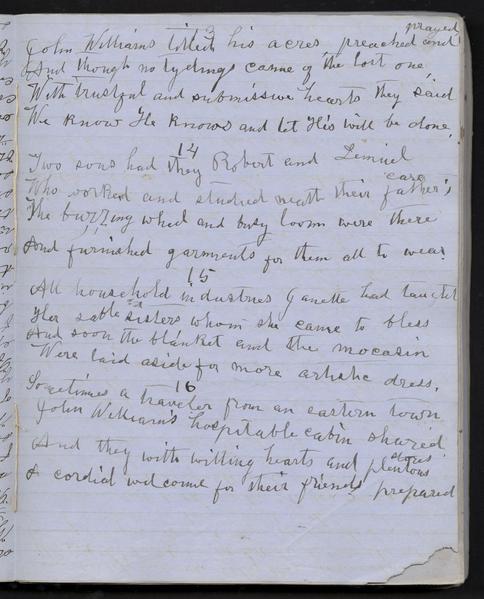 13
John Williams tilled his acres, preached and prayed
And though no tydings came of the lost one,
With trustful and submissive hearts they said
We know He knows and let His will be done,
14
Two sons had they Robert and Lemuel
Who worked and studied neath their father's care
The buzzing wheel and busy loom were there
And furnished garments for them all to wear
15
All household industries had taught
Her sable sisters whom she came to bless
And soon the blanket and the mocasin
Were laid aside for more artistic dress.
16
Sometimes a traveler from an eastern town
John William's hospitable cabin shared
And they with willing hearts and plenteous
A cordial welcome for their friends prepared